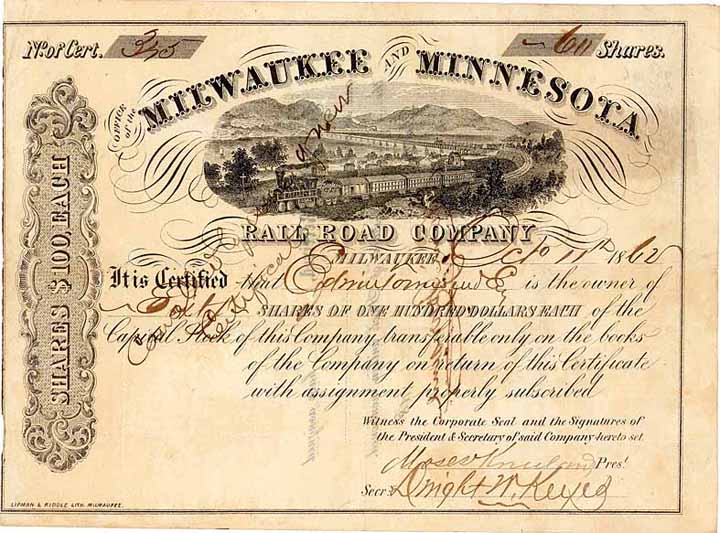 No. of Cert. 325
60 Shares.
OFFICE of the
MILWAUKEE AND MINNESOTA
RAIL ROAD COMPANY
SHARES $100, EACH
MILWAUKEE, Oct 11th 1862
It is Certified that is the owner of
Sixty SHARES OF ONE HUNDRED DOLLARS EACH of the
Capital Stock of this Company, transferable only on the books
of the Company on return of this Certificate
with assignment properly subscribed
Witness the Corporate Seal and the Signatures of
the President & Secretary of said Company hereto set.
Moses Kneeland Prest
Secry Dwight W. Keyes
LIPMAN & RIDDLE LITH. MILWAUKEE.
new
Certificate